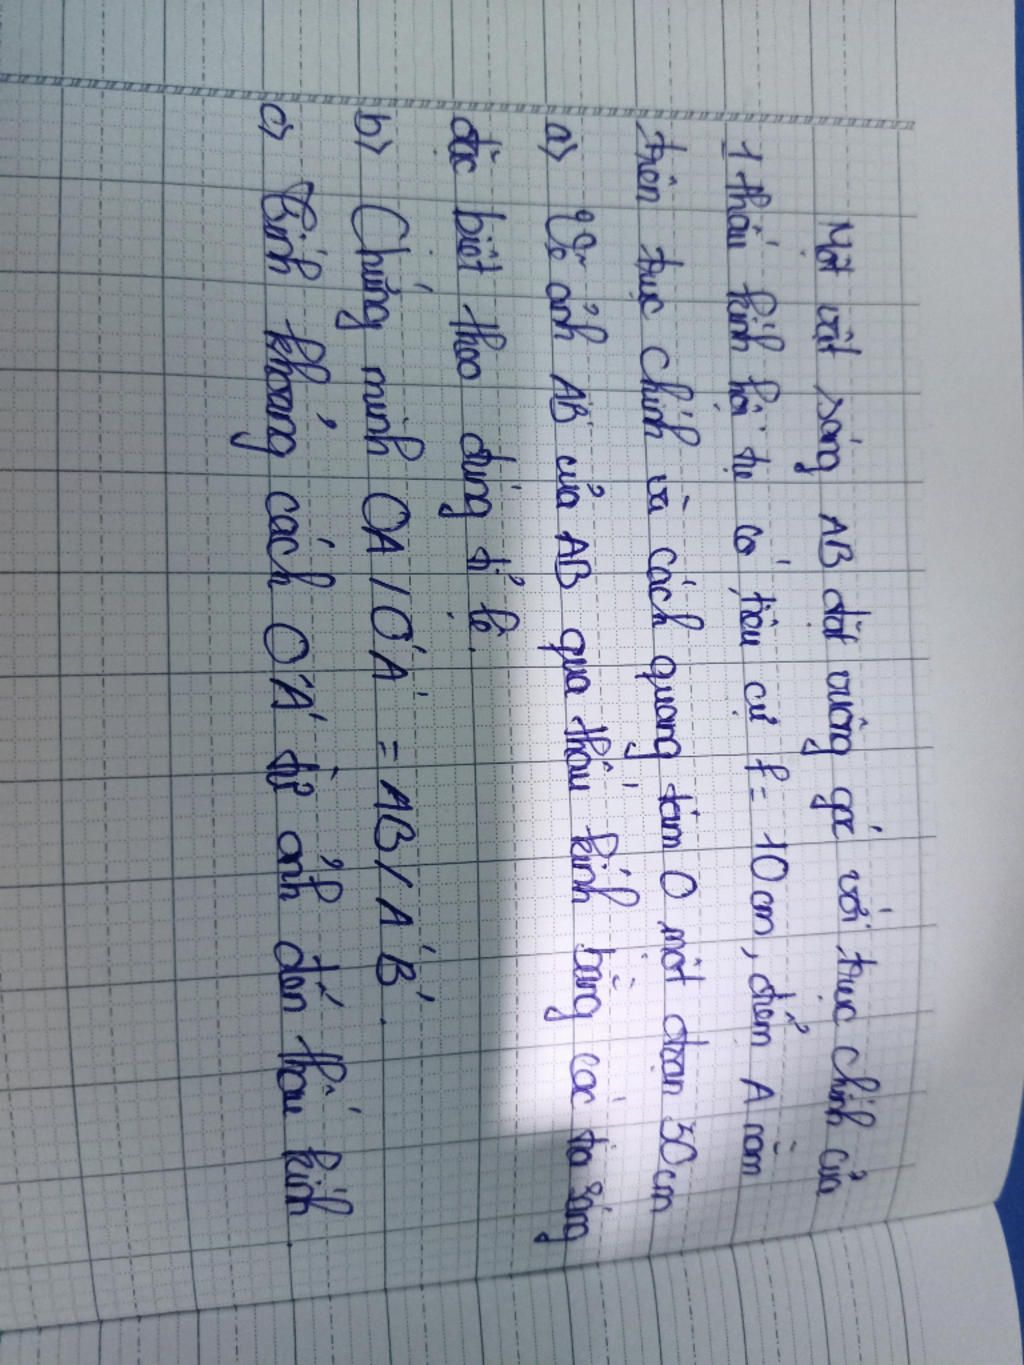 Một vật sáng AB đặt vuông góc với trục chính của
1 thấu kính hội tụ có tiêu cự f = 10cm, điểm A nằm
trên trục chính và cách quang tâm O một đoạn 50cm
a> Vẽ ảnh A'B' của AB qua thấu kính bằng các tia sáng
đặc biệt theo đúng tỉ lệ.
b> Chứng minh OA / OA' = AB / A'B'.
c> Tính khoảng cách OA' từ ảnh đến thấu kính.